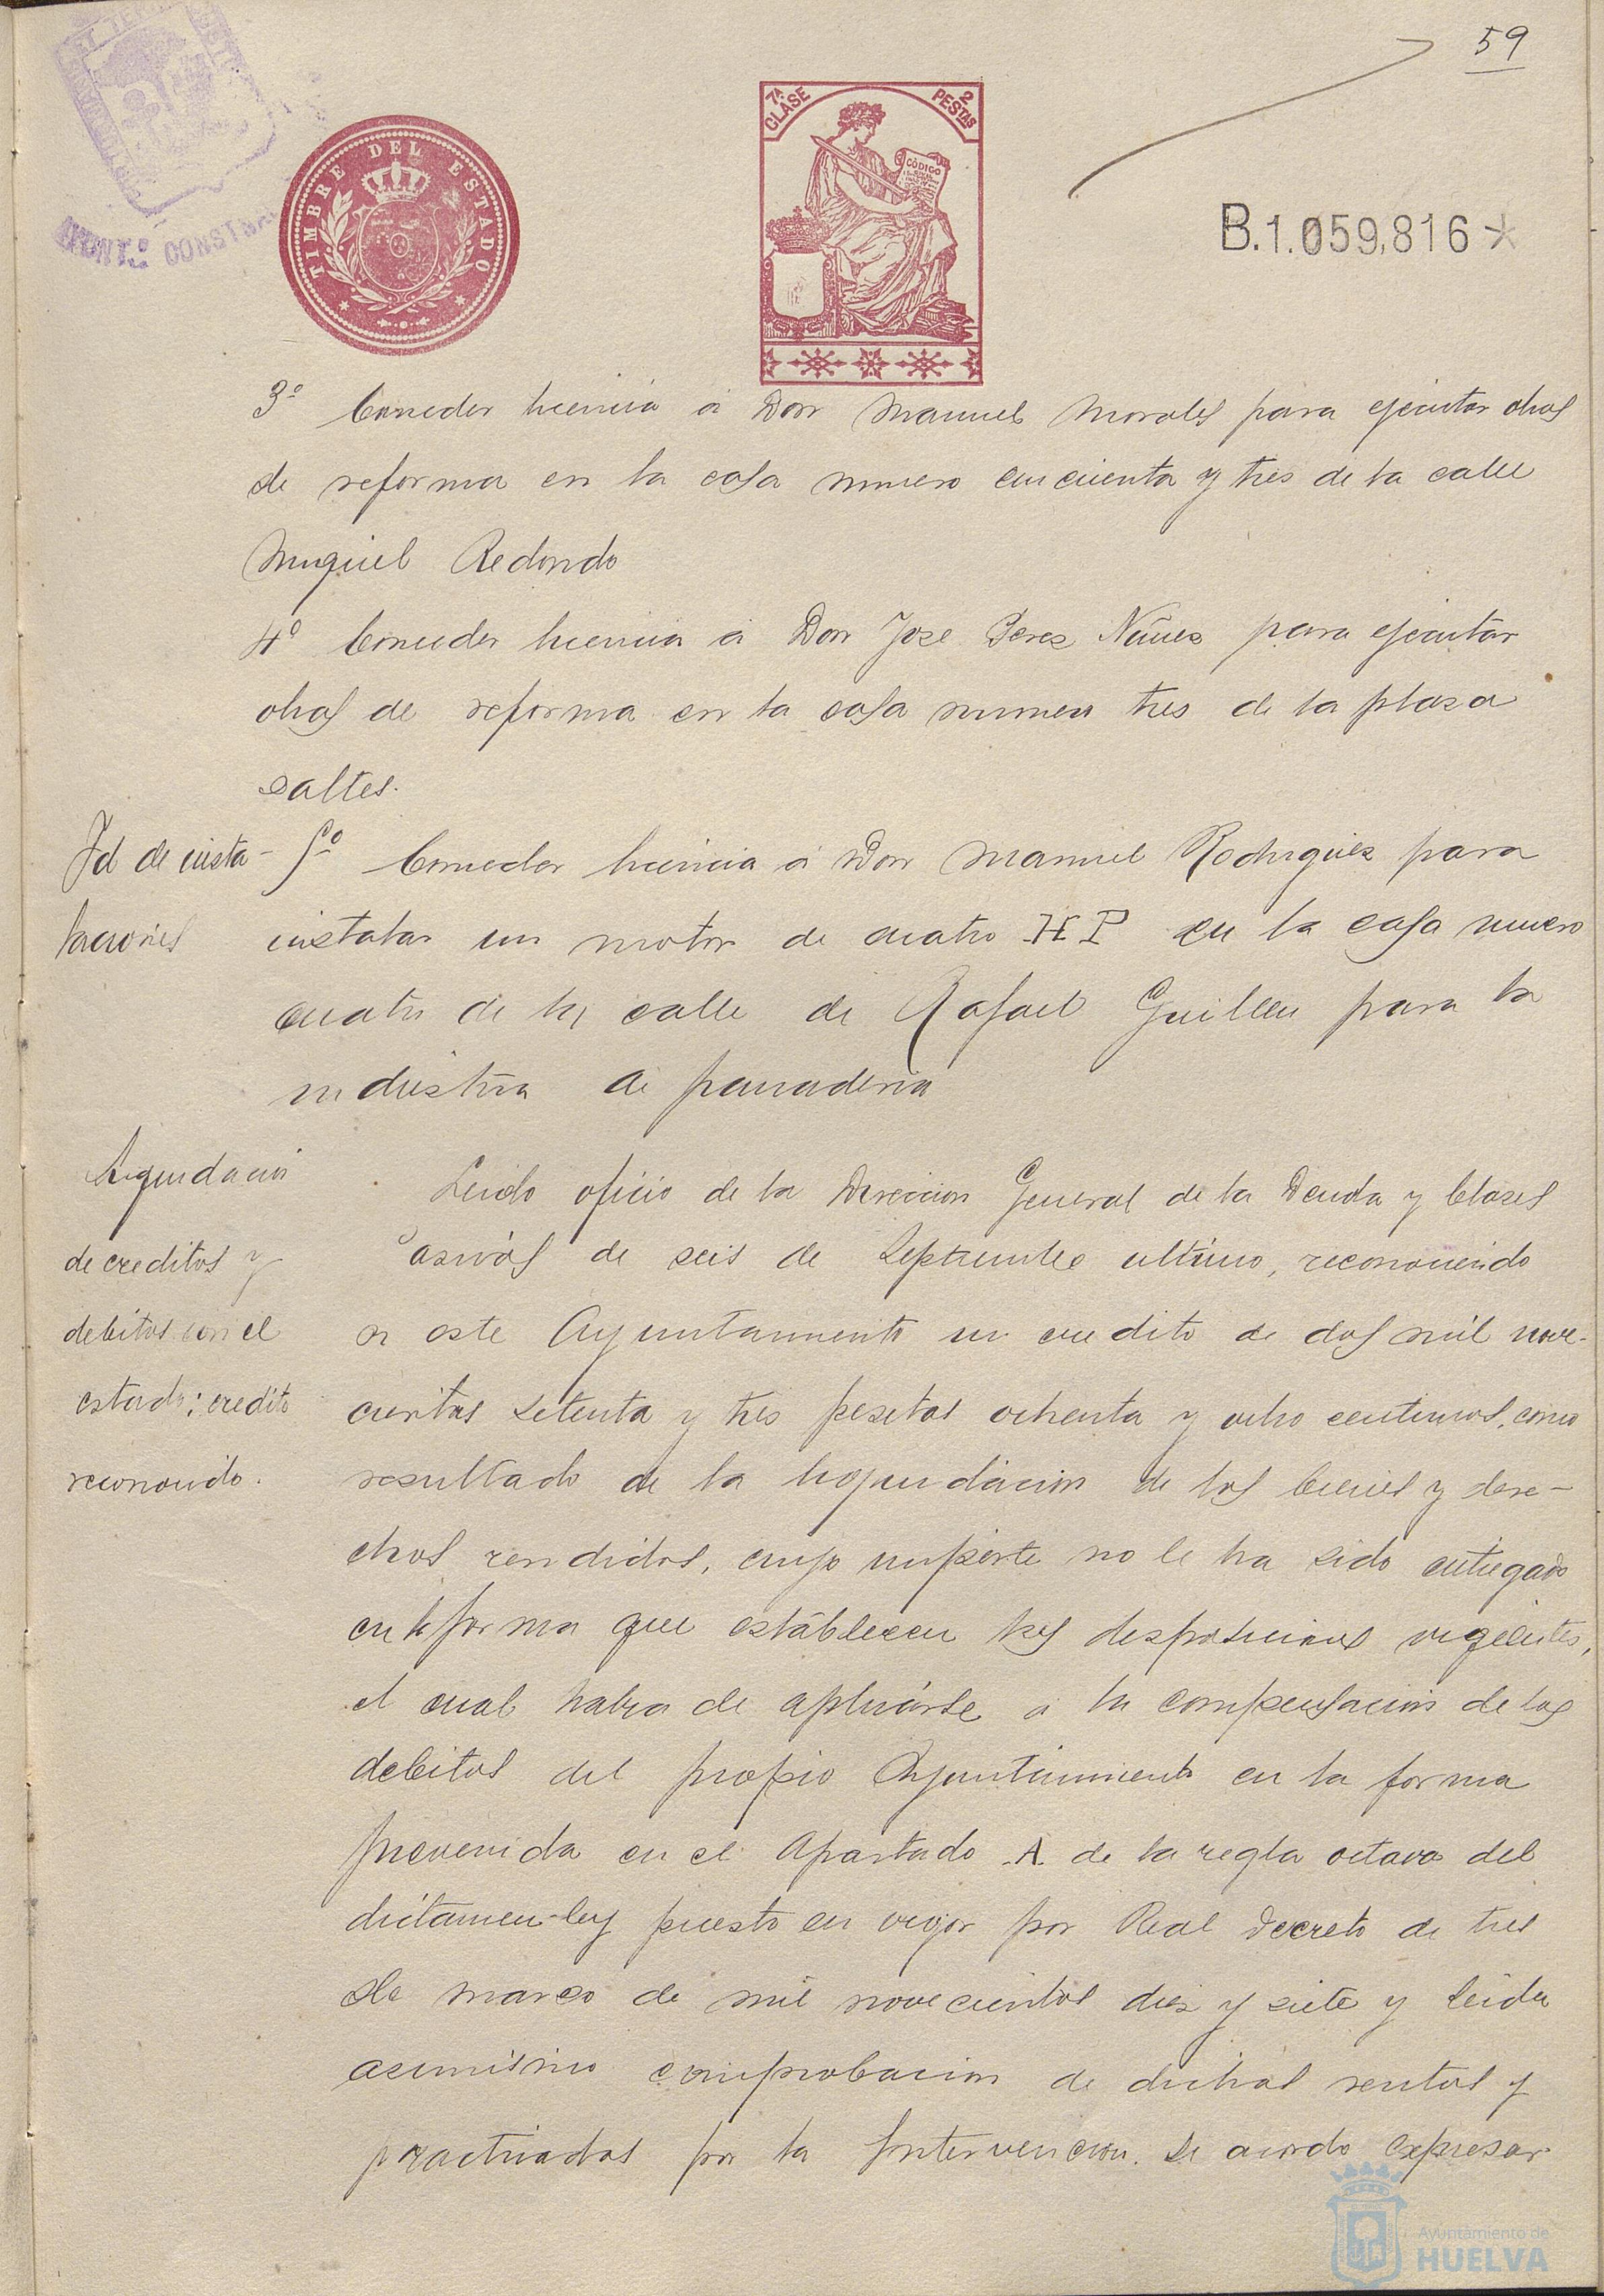 59
TIMBRE DEL ESTADO
7ª CLASE
2 PESTAS
CÓDIGO
B.1.059,816*
AYUNTº CONST
3º Conceder licencia á Don Manuel Morales para ejecutar obras
de reforma en la casa numero cincuenta y tres de la calle
Miguel Redondo
4º Conceder licencia á Don Jose Perez Nuñez para ejecutar
obras de reforma en la casa numero tres de la plaza
Saltes.
Id de insta-
laciones
5º Conceder licencia á Don Manuel Rodriguez para
instalar un motor de cuatro HP en la casa numero
cuatro de la calle de Rafael Guillen para la
industria de panaderia
Liquidacion
de creditos y
debitos con el
estado; credito
reconocido.
Leido oficio de la Direccion General de la Deuda y Clases
Pasivas de seis de Septiembre ultimo, reconociendo
a este Ayuntamiento un credito de dos mil nove-
cientas setenta y tres pesetas ochenta y ocho centimos, como
resultado de la liquidacion de los bienes y dere-
chos rendidos, cuyo importe no le ha sido entregado
en la forma que establecen las disposiciones vigentes,
el cual habra de aplicarse a la compensacion de los
debitos del propio Ayuntamiento en la forma
prevenida en el Apartado A. de la regla octava del
dictamen-ley puesto en vigor por Real Decreto de tres
de marzo de mil novecientos diez y siete y leida
asimismo comprobacion de dichas rentas y
practicadas por la Intervencion. Se acordo expresar
Ayuntamiento de
HUELVA